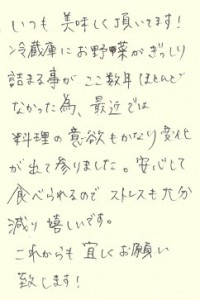 いつも美味しく頂いてます!
冷蔵庫にお野菜がぎっしり
詰まる事がここ数年ほとんど
なかった為、最近では
料理の意欲もかなり変化
が出て参りました。安心して
食べられるのでストレスも九分
減り嬉しいです。
これからも宜しくお願い
致します!